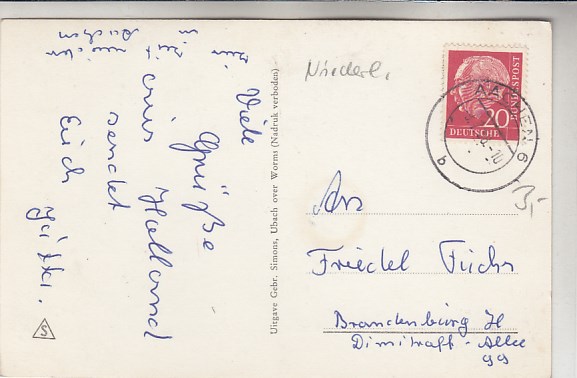 Viele
Grüße
aus Holland
sendet
Euch
Niederl.
Uitgave Gebr. Simons, Ubach over Worms (Nadruk verboden)
S
DEUTSCHE BUNDESPOST
20
AACHEN
b
3,-
An
Friedel Fuchs
Brandenburg H
Dimitroff-Allee
99